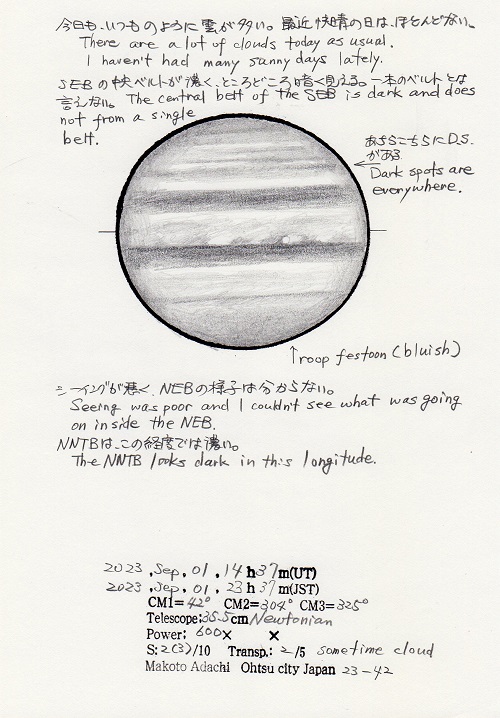 今日も、いつものように雲が多い。最近快晴の日は、ほとんどない。
There are a lot of clouds today as usual.
I haven't had many sunny days lately.
SEBの中央ベルトが濃く、ところどころ暗く見える。一本のベルトとは
言えない。The central belt of the SEB is dark and does
not from a single
belt.
あちらこちらにD.S.
がある
Dark spots are
everywhere.
↑roop festoon (bluish)
シーイングが悪く、NEBの様子は分からない。
Seeing was poor and I couldn't see what was going
on inside the NEB.
NNTBは、この経度では濃い。
The NNTB looks dark in this longitude.
2023 ,Sep, 01 , 14 h 37 m(UT)
2023 ,Sep, 01 , 23 h 37 m(JST)
CM1= 42° CM2= 304° CM3= 325°
Telescope:35.5cm Newtonian
Power: 600× ×
S: 2(3)/10 Transp.: 2/5 sometime cloud
Makoto Adachi Ohtsu city Japan 23-42